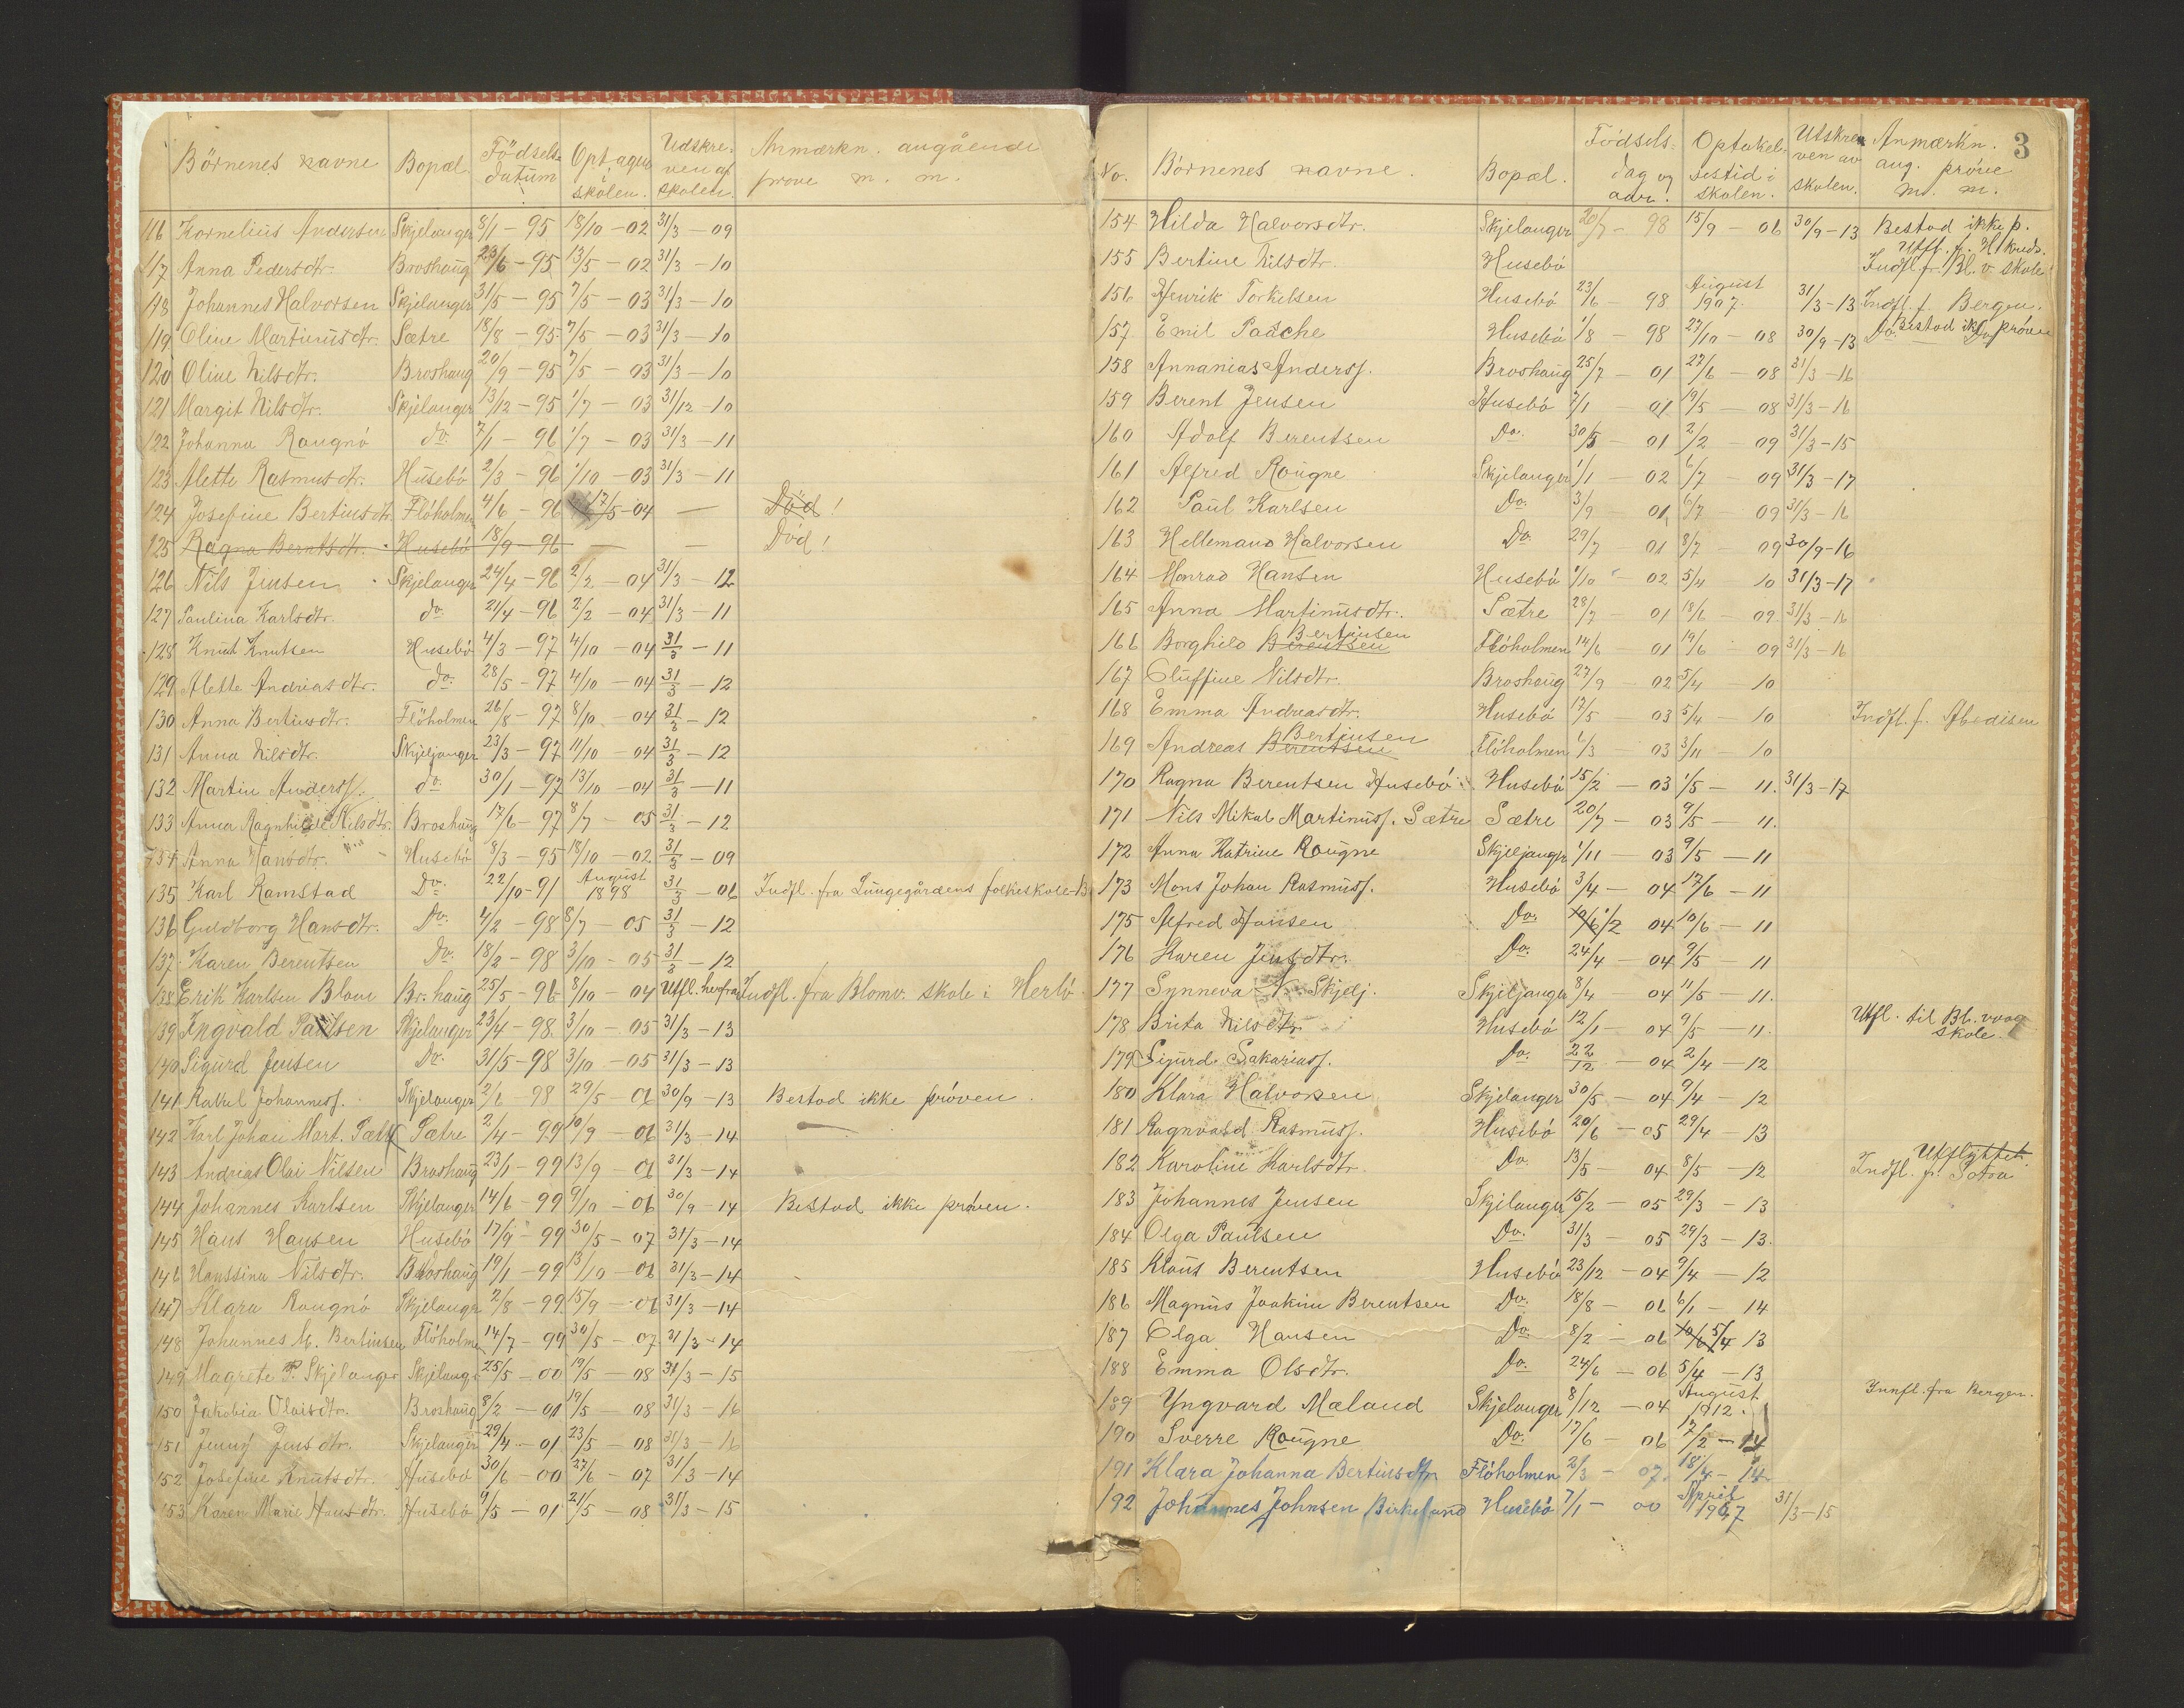 Börnenes navne Bopæl. Födsels- datum Optagne i skolen. Udskre- ven af skolen. Anmærkn. angående prøve m. m.
116 Kornelius Andersen Skjelanger 8/1 - 95 18/10 - 02 31/3 - 09
117 Anna Pedersdtr. Broshaug 23/6 - 95 13/5 - 02 31/3 - 10
118 Johannes Halvorsen Skjelanger 31/5 - 95 7/5 - 03 31/3 - 10
119 Oline Martinusdtr. Sætre 18/8 - 95 7/5 - 03 31/3 - 10
120 Oline Nilsdtr. Broshaug 20/9 - 95 7/5 - 03 31/3 - 10
121 Margit Nilsdtr. Skjelanger 13/12 - 95 1/7 - 03 31/12 - 10
122 Johanna Raugnö do. 7/1 - 96 1/7 - 03 31/3 - 11
123 Alette Rasmusdtr. Husebö 2/3 - 96 1/10 - 03 31/3 - 11
124 Josefine Bertiusdtr. Flöholmen 4/6 - 96 17/5 - 04 — Död!
125 Ragna Berntsdtr. Husebö 18/9 - 96 — — Död!
126 Nils Jensen Skjelanger 24/4 - 96 2/2 - 04 31/3 - 12
127 Paulina Karlsdtr. do. 21/4 - 96 2/2 - 04 31/3 - 11
128 Knut Knutsen Husebö 4/3 - 97 4/10 - 04 31/3 - 11
129 Alette Andriasdtr. do. 28/5 - 97 4/10 - 04 31/3 - 12
130 Anna Bertiusdtr. Flöholmen 26/8 - 97 8/10 - 04 31/3 - 12
131 Anna Nilsdtr. Skjeljanger 23/3 - 97 11/10 - 04 31/3 - 12
132 Martin Anderss. do. 30/1 - 97 13/10 - 04 31/3 - 11
133 Anna Ragnhilde Nilsdtr. Broshaug 17/6 - 97 8/7 - 05 31/3 - 12
Anna Hansdtr. Husebö 8/3 - 95 18/10 - 02 31/3 - 09
135 Karl Ramstad Do. 22/10 - 91 August 1898 31/3 - 06 Indfl. fra Lungegårdens folkeskole B
136 Guldborg Hansdtr. Do. 4/2 - 98 8/7 - 05 31/3 - 12
137 Karen Berentsen Do. 18/2 - 98 3/10 - 05 31/3 - 12
138 Erik Karlsen Blom Br.haug 25/5 - 96 8/10 - 04 Utfl. herfra Indfl. fra Blomv. skole i Herlö
139 Ingvald Paulsen Skjelanger 23/4 - 98 3/10 - 05 31/3 - 13
140 Sigurd Jensen Do. 31/5 - 98 3/10 - 05 31/3 - 13
141 Rakul Johanness. Skjelanger 2/6 - 98 29/5 - 06 30/9 - 13 Bestod ikke prøven.
142 Karl Johan Mart. Sætre Sætre 2/4 - 99 10/9 - 06 31/3 - 14
143 Andrias Olai Nilsen Broshaug 23/1 - 99 13/9 - 06 31/3 - 14
144 Johannes Karlsen Skjelanger 14/6 - 99 9/10 - 06 30/9 - 14 Bestod ikke prøven.
145 Hans Hansen Husebö 17/9 - 99 30/5 - 07 31/3 - 14
146 Hanssina Nilsdtr. Broshaug 19/1 - 99 13/10 - 06 31/3 - 14
147 Klara Raugnö Skjelanger 2/8 - 99 15/9 - 06 31/3 - 14
148 Johannes M. Bertiusen Flöholmen 14/7 - 99 30/5 - 07 31/3 - 14
149 Magrete P. Skjelanger Skjelanger 25/5 - 00 19/5 - 08 31/3 - 15
150 Jakobia Olaisdtr. Broshaug 8/2 - 01 19/5 - 08 31/3 - 16
151 Jenny Jensdtr. Skjelanger 29/4 - 01 23/5 - 08 31/3 - 16
152 Josefine Knutsdtr. Husebö 30/6 - 00 27/6 - 07 31/3 - 14
153 Karen Marie Hansdtr. Husebö 9/5 - 01 21/5 - 08 31/3 - 15
3
No. Börnenes navne. Bopæl. Födsels- dag og aar. Optakel- sestid i skolen. Utskre- ven av skolen. Anmærkn. ang. prøve m. m.
154 Hilda Halvorsdtr. Skjelanger 20/7 - 98 15/9 - 06 30/9 - 13 Bestod ikke p.
155 Bertine Nilsdtr. Husebö Utfl. f. Hl. kreds. Indfl. fr. Bl. v skole
156 Henrik Torkelsen Husebö 23/6 - 98 August 1907. 31/3 - 13 Indfl. f. Bergen.
157 Emil Paasche Husebö 1/8 - 98 27/10 - 08 30/9 - 13 Do. Bestod ikke prøven
158 Annanias Anderss. Broshaug 25/7 - 01 27/6 - 08 31/3 - 16
159 Berent Jensen Husebö 7/1 - 01 19/5 - 08 31/3 - 16
160 Adolf Berentsen Do. 30/5 - 01 2/2 - 09 31/3 - 15
161 Alfred Rougne Skjelanger 1/1 - 02 6/7 - 09 31/3 - 17
162 Paul Karlsen Do. 3/9 - 01 6/7 - 09 31/3 - 16
163 Hellemand Halvorsen Do. 29/7 - 01 8/7 - 09 30/9 - 16
164 Monrad Hansen Husebö 1/10 - 02 5/4 10 31/3 - 17
165 Anna Martinusdtr. Sætre 28/7 - 01 18/6 - 09 31/3 - 16
166 Borghild Berentsen Bertiusen Flöholmen 14/6 - 01 19/6 - 09 31/3 - 16
167 Oluffine Nilsdtr. Broshaug 27/9 - 02 5/4 - 10
168 Emma Andreasdtr. Husebö 17/5 - 03 5/4 - 10 Indfl. f. Abedisen
169 Andreas Berentsen Bertiusen Flöholmen 1/3 - 03 3/11 - 10
170 Ragna Berentsen Husebö Husebö 15/2 - 03 1/5 - 11. 31/3 - 17
171 Nils Mikal Martinuss. Sætre Sætre 20/7 - 03 9/5 - 11.
172 Anna Katrine Rougne Skjeljanger 1/11 - 03 9/5 - 11
173 Mons Johan Rasmuss. Husebö 3/4 - 04 17/6 - 11
175 Alfred Hansen Do. 1/2 04 10/6 - 11
176 Karen Jensdtr. Do. 24/4 - 04 9/5 - 11
177 Synneva N. Skjelj. Skjeljanger 8/4 - 04 11/5 - 11.
178 Brita Nilsdtr. Husebö 12/1 - 04 9/5 - 11. Utfl. til Bl. vaag skole.
179 Sigurd Sakariass. Do. 22/12 - 04 2/4 - 12
180 Klara Halvorsen Skjelanger 30/5 - 04 9/4 - 12
181 Ragnvald Rasmuss. Husebö 20/6 - 05 29/4 - 13
182 Karoline Karlsdtr. Do. 13/5 - 04 8/5 - 12 Utflyttet. Indfl. fr. Sotra
183 Johannes Jensen Skjelanger 15/2 - 05 29/3 - 13
184 Olga Paulsen Do. 31/3 - 05 29/3 - 13.
185 Klaus Berentsen Husebö 23/12 - 04 9/4 - 12
186 Magnus Joakim Berentsen Do. 18/8 - 06 6/1 - 14
187 Olga Hansen Do. 8/2 - 06 10/6 5/4 13
188 Emma Olsdtr. Do. 24/6 - 06 5/4 - 13
189 Yngvard Mæland Skjelanger 8/12 - 04 August 1912. Innfl. fra Bergen.
190 Sverre Rougne Do. 17/6 - 06 17/2 - 14
191 Klara Johanna Bertiusdtr Flöholmen 2/3 - 07. 18/4 - 14
192 Johannes Johnsen Birkeland Husebö 7/1 - 00 April 1907 31/3 - 15